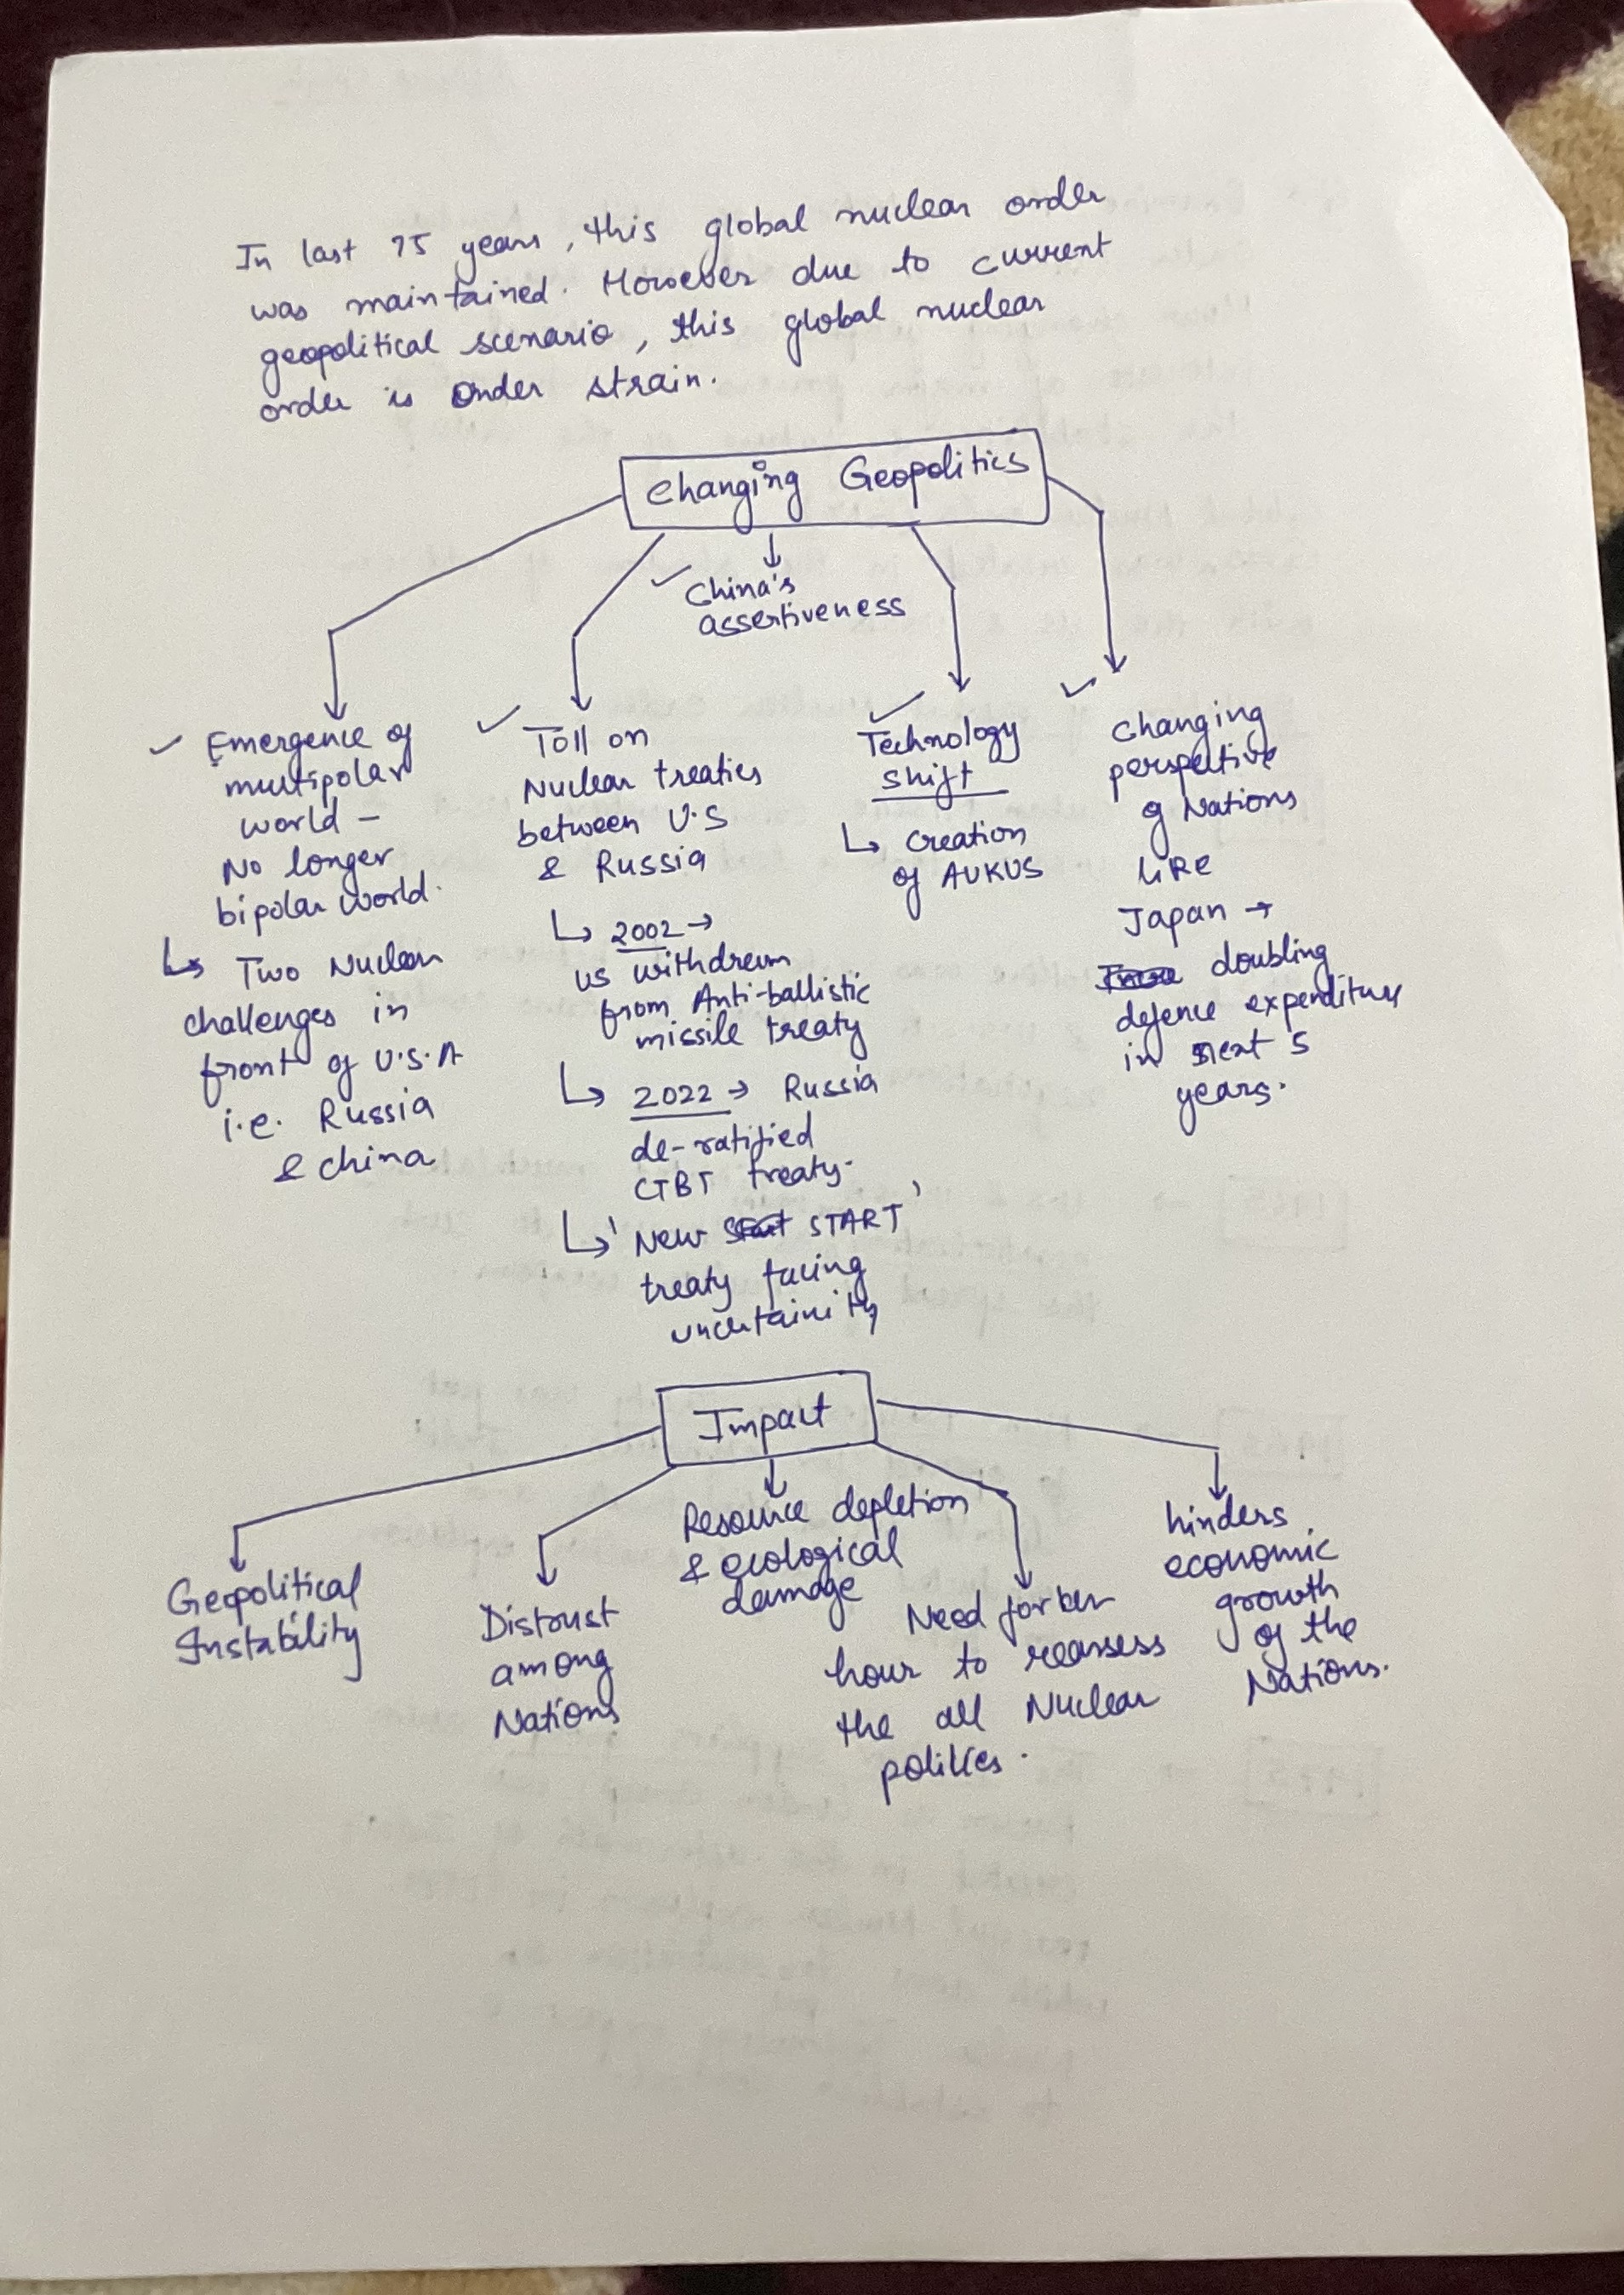 In last 75 years, this global nuclear order
was maintained. However due to current
geopolitical scenario, this global nuclear
order is under strain.
Changing Geopolitics
China's
assertiveness
Emergence of
multipolar
world -
No longer
bipolar world.
Two Nuclear
challenges in
front of U.S.A
i.e. Russia
& china
Toll on
Nuclear treaties
between U.S
& Russia
2002 →
US withdrawn
from Anti-ballistic
missile treaty
2022 → Russia
de-ratified
CTBT treaty.
'New START'
treaty facing
uncertainity
Technology
shift
Creation
of AUKUS
Changing
perspective
of Nations
like
Japan →
doubling
defence expenditure
in next 5
years.
Impact
Geopolitical
Instability
Distrust
among
Nations
Resource depletion
& ecological
damage
Need for
hour to reassess
the all Nuclear
policies.
hinders
economic
growth
of the
Nations.